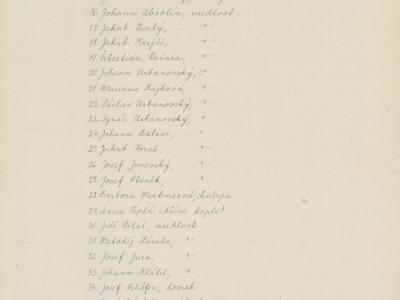 16. Johann Absolín, usedlost
17. Jakub Veselý, -"-
18. Jakub Krejčí, -"-
19. Šebestián Vaňura, -"-
20. Johann Urbanovský, -"-
21. Mariana Hajková, -"-
22. Václav Urbanovský, -"-
23. Ignác Urbanovský, -"-
24. Johann Balcar, -"-
25. Jakub Foral, -"-
26. Josef Junovský, -"-
27. Josef Staněk, -"-
28. Barbora Mertensová, chalupa
29. Anna Teplá, (dříve kaple)
30. Jiří Volař, usedlost
31. Metoděj Záruba, -"-
32. Josef Jura, -"-
33. Johann Klátil, -"-
34. Josef Schäfer, domek